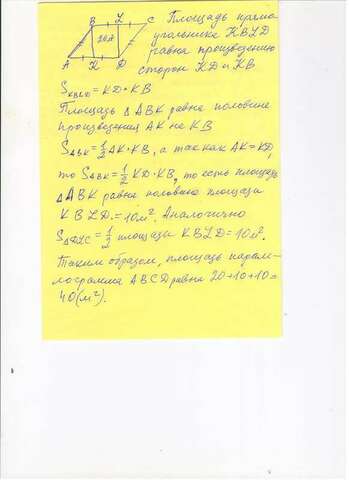 B L C Площадь прямо
угольника KBLD
20м равна произведению
A K D сторон KD и KB
S KBLD = KD · KB
Площадь Δ ABK равна половине
произведения AK на KB
S ABK = 1/2 AK · KB, а так как AK = KD,
то S ABK = 1/2 KD · KB, то есть площадь
Δ ABK равна половине площади
KBLD = 10м². Аналогично
S ΔDLC = 1/2 площади KBLD = 10м².
Таким образом, площадь парал-
лограмма ABCD равна 20+10+10=
40(м²).